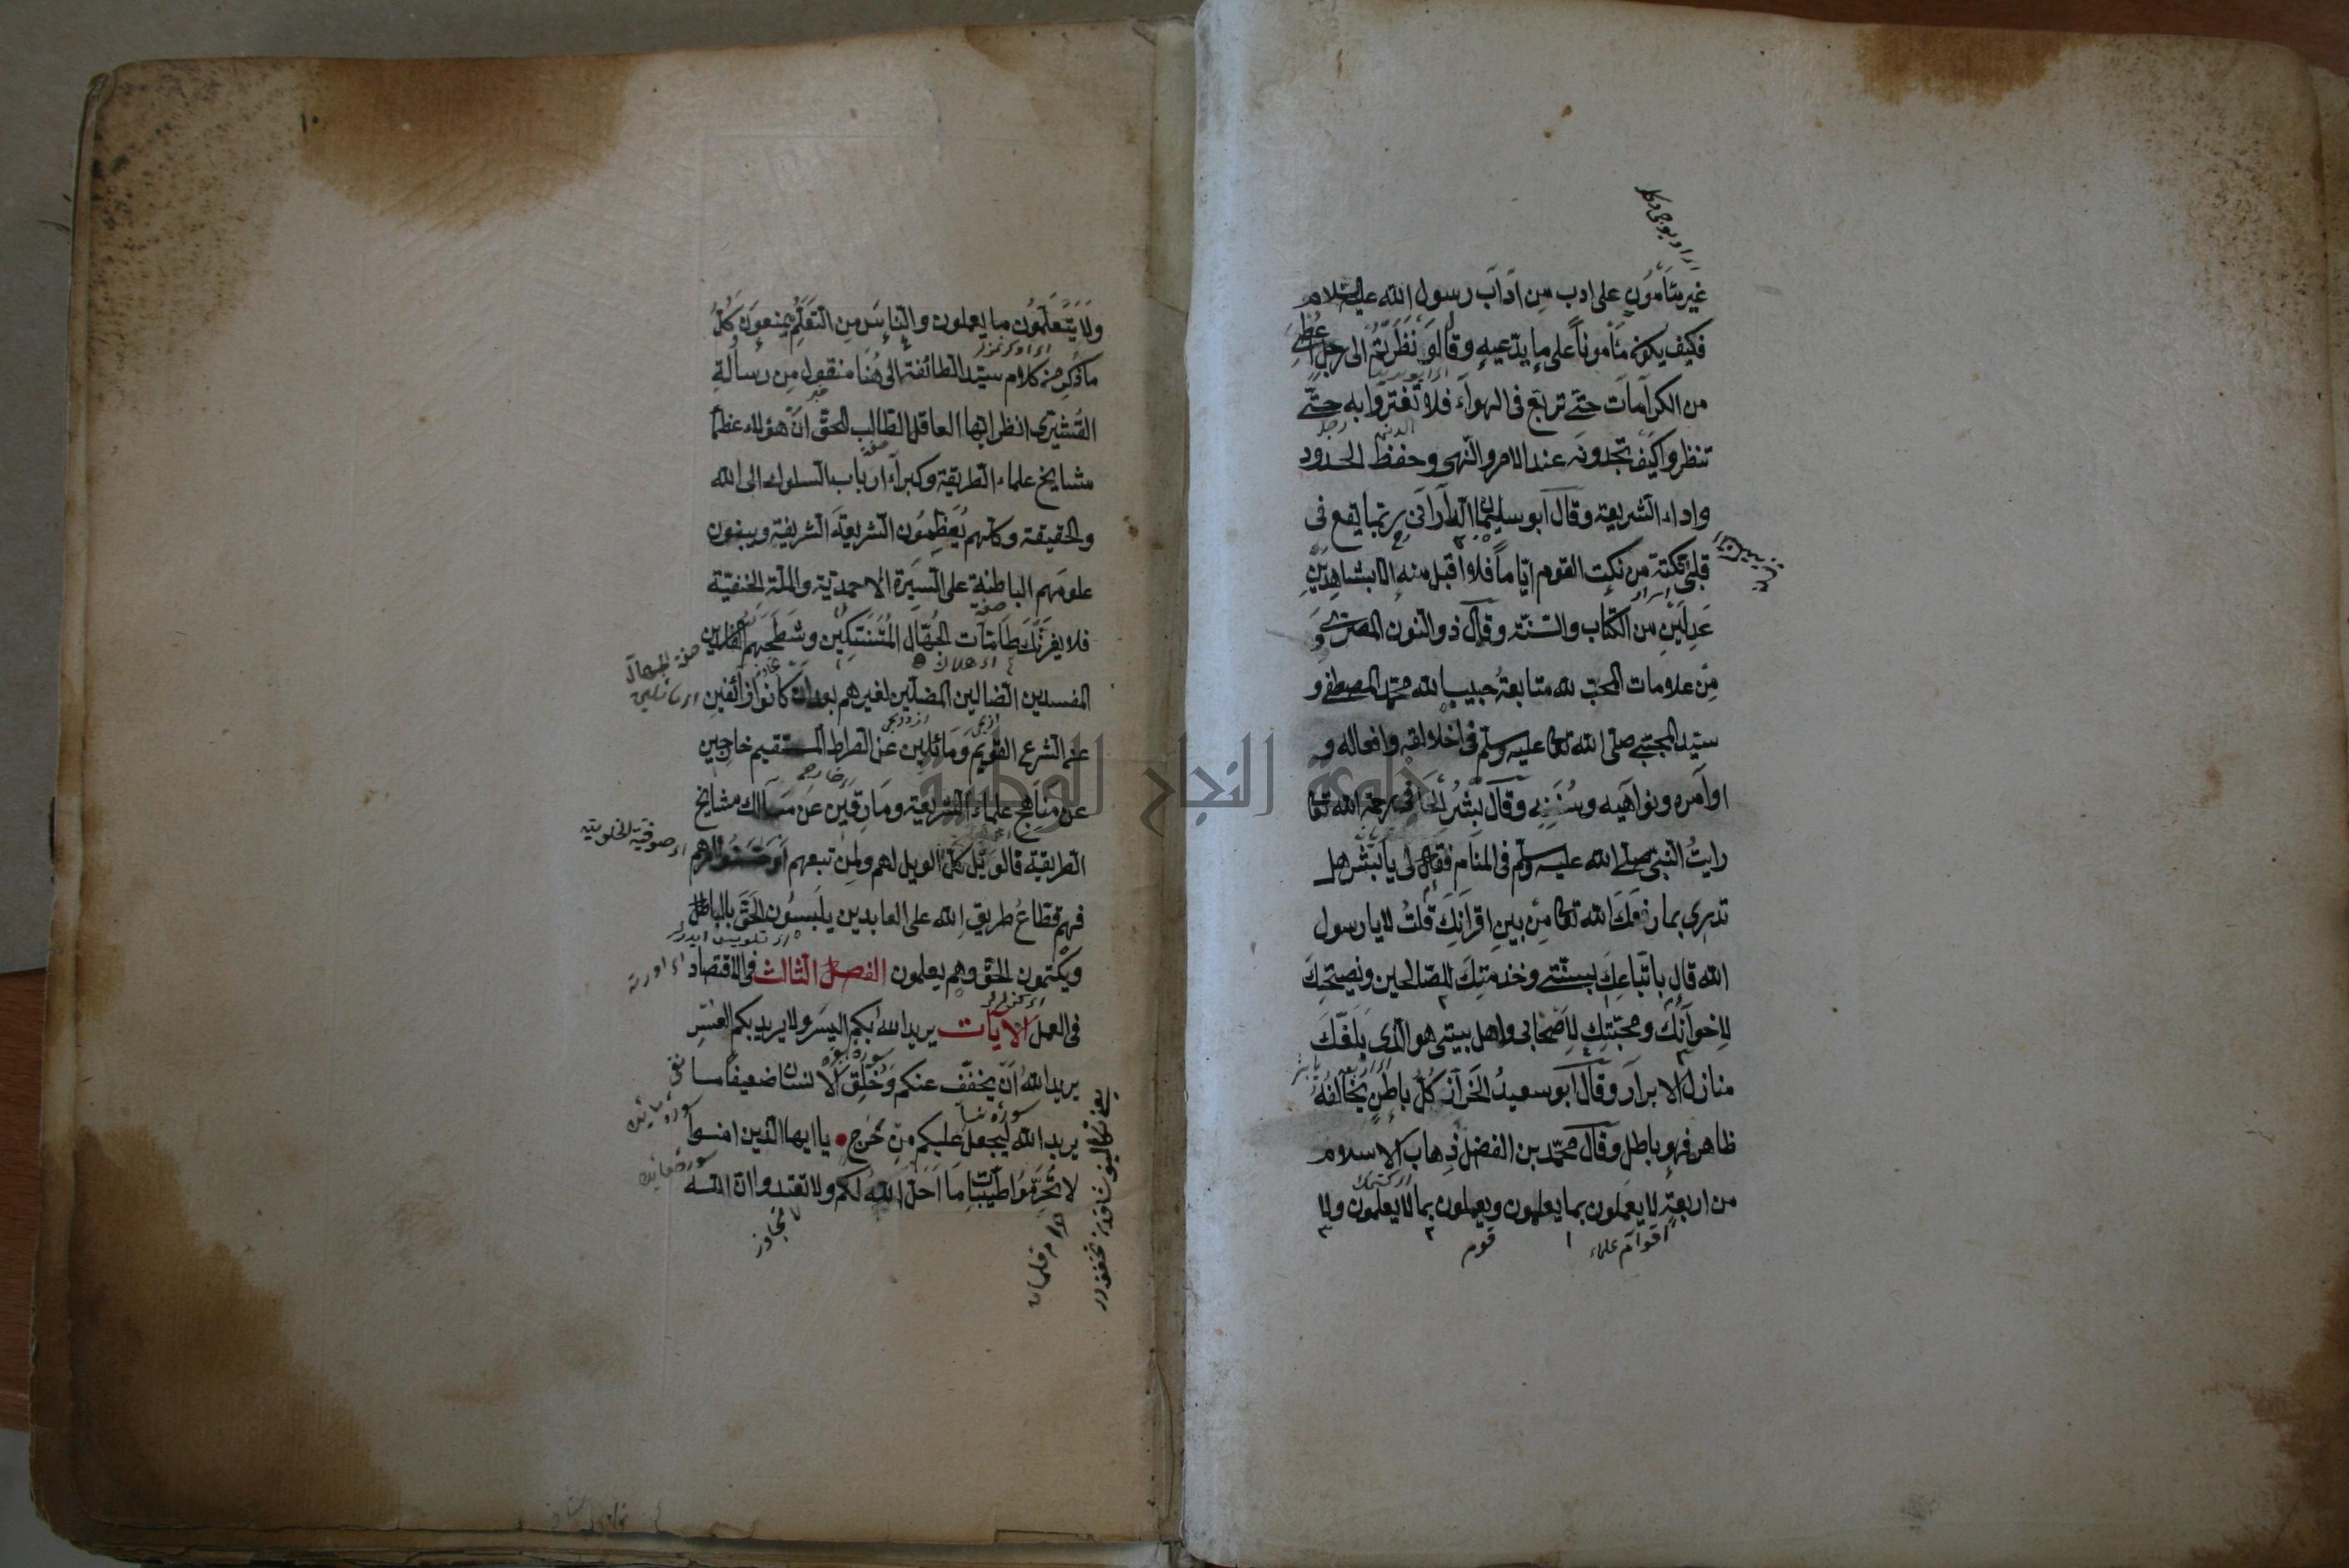 غير مأمون على ادب من اداب رسول الله عليه السلام
فكيف يكون مأمونا على ما يدعيه وقال لو نظرتم الى رجل اعطي
من الكرامات حتى تربع فى الهواء فلا تغتروا به حتى
تنظروا كيف تجدونه عند الامر والنهى وحفظ الحدود
واداء الشريعة وقال ابو سليمان الداراني ربما يقع فى
قلبى نكتة من نكت القوم اياما فلا اقبل منه الا بشاهدين
عدلين من الكتاب والسنة وقال ذو النون المصري
من علامات المحب لله متابعة حبيب الله محمد المصطفى و
سيد المجتبى صلى الله تعالى عليه وسلم فى اخلاقه وافعاله و
اوامره ونواهيه وسننه وقال بشر الحافى رحمة الله تعا
رايت النبى صلى الله عليه وسلم فى المنام فقال لى يا بشر هل
تدرى بما رفعك الله تعالى من بين اقرانك قلت لا يا رسول
الله قال باتباعك لسنتى وخدمتك للصالحين ونصيحتك
لاخوانك ومحبتك لاصحابى واهل بيتى هو الذى بلغك
منازل الابرار وقال ابو سعيد الخراز كل باطن يخالفه
ظاهر فهو باطل وقال محمد بن الفضل ذهاب الاسلام
من اربعة لا يعملون بما يعلمون ويعملون بما لا يعلمون ولا
اقوام علماء
قوم
ولا يتعلمون ما يعملون والناس من التعلم يمنعون كل
ما ذكر من كلام سيد الطائفة الى هنا منقول من رسالة
القشيرى انظر ايها العاقل الطالب للحق ان هؤلاء عظما
مشايخ علماء الطريقة وكبراء ارباب السلوك الى الله
والحقيقة وكلهم يعظمون الشريعة الشريفة ويبنون
علومهم الباطنة على السيرة الاحمدية والملة الحنفية
فلا يغرنك طامات الجهال المتنسكين وشطحهم الفاسدين
المفسدين الضالين المضلين لغيرهم بعد ان كانوا زائغين
عن الشرع القويم ومائلين عن الصراط المستقيم خارجين
عن مناهج علماء الشريعة ومارقين عن مسالك مشايخ
الطريقة فالويل كل الويل لهم ولمن تبعهم او حسن امرهم
فهم قطاع طريق الله على العابدين يلبسون الحق بالباطل
ويكتمون الحق وهم يعلمون الفصل الثالث فى الاقتصاد
فى العمل الآيات يريد الله بكم اليسر ولا يريد بكم العسر
يريد الله ان يخفف عنكم وخلق الانسان ضعيفا ما
يريد الله ليجعل عليكم من حرج يا ايها الذين امنوا
لا تحرموا طيبات ما احل الله لكم ولا تعتدوا ان الله
صفة الجهال
جامعة النجاح الوطنية